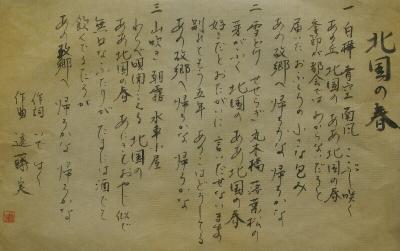 北国の春
一 白樺 青空 南風 こぶし咲く
あの丘 北国の ああ 北国の春
季節が都会では わからないだろと
届いたおふくろの 小さな包み
あの故郷へ 帰ろかな 帰ろかな
二 雪どけ せせらぎ 丸木橋 落葉松の
芽がふく 北国の ああ 北国の春
好きだとおたがいに 言いだせないまま
別れてもう五年 あのこはどうしてる
あの故郷へ 帰ろかな 帰ろかな
三 山吹き 朝霧 水車小屋
わらべ唄聞こえる 北国の
ああ 北国の春 あにきもおやじ似で
無口なふたりが たまには酒でも
飲んでるだろか
あの故郷へ 帰ろかな 帰ろかな
作詞 いではく
作曲 遠藤実